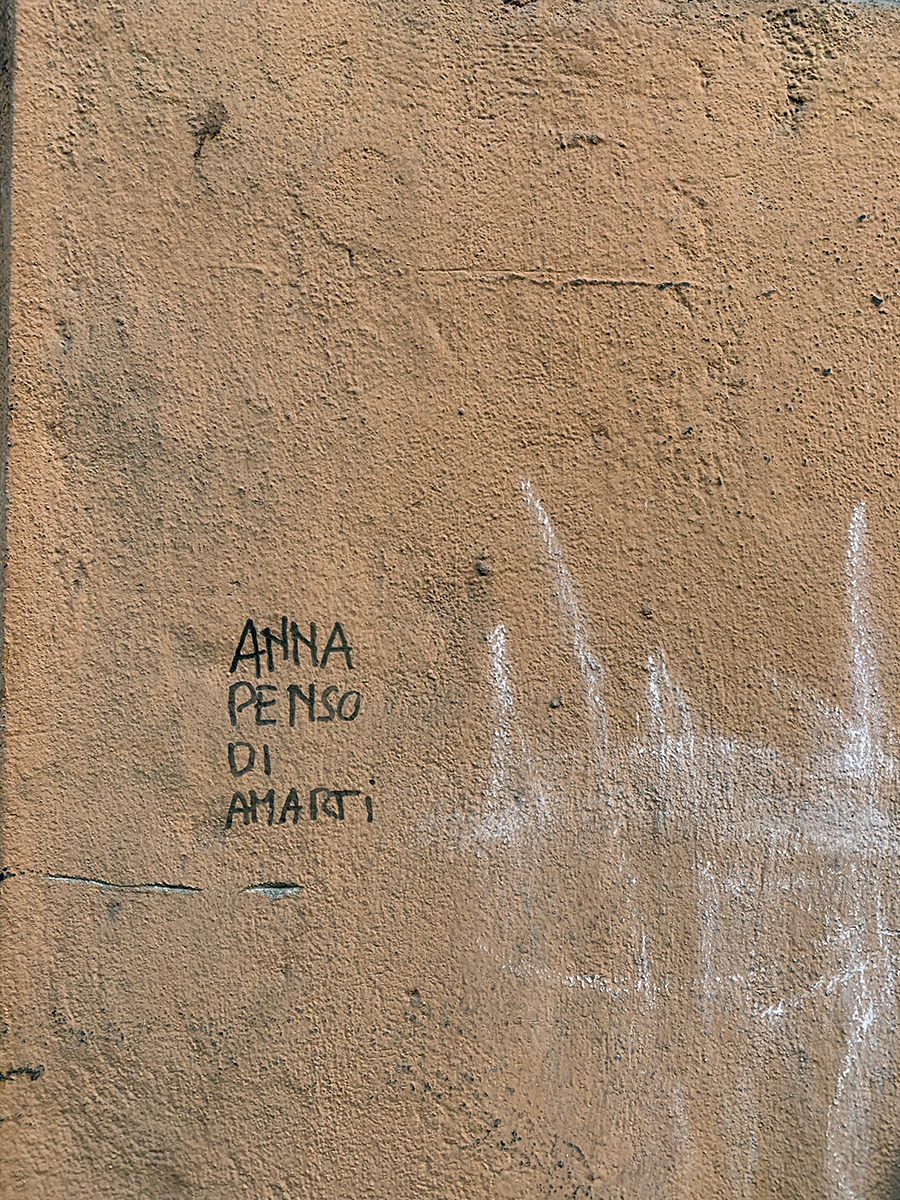 ANNA
PENSO
DI
AMARTi